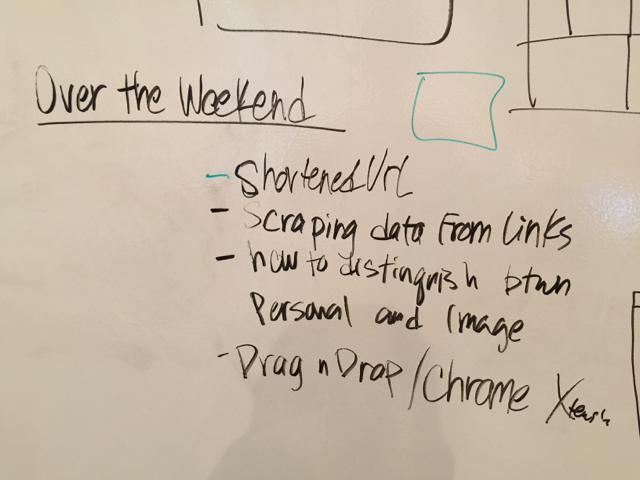 Over the Weekend
- Shortened Url
- Scraping data From links
- how to distingish btwn
Personal and Image
- Drag n Drop / Chrome